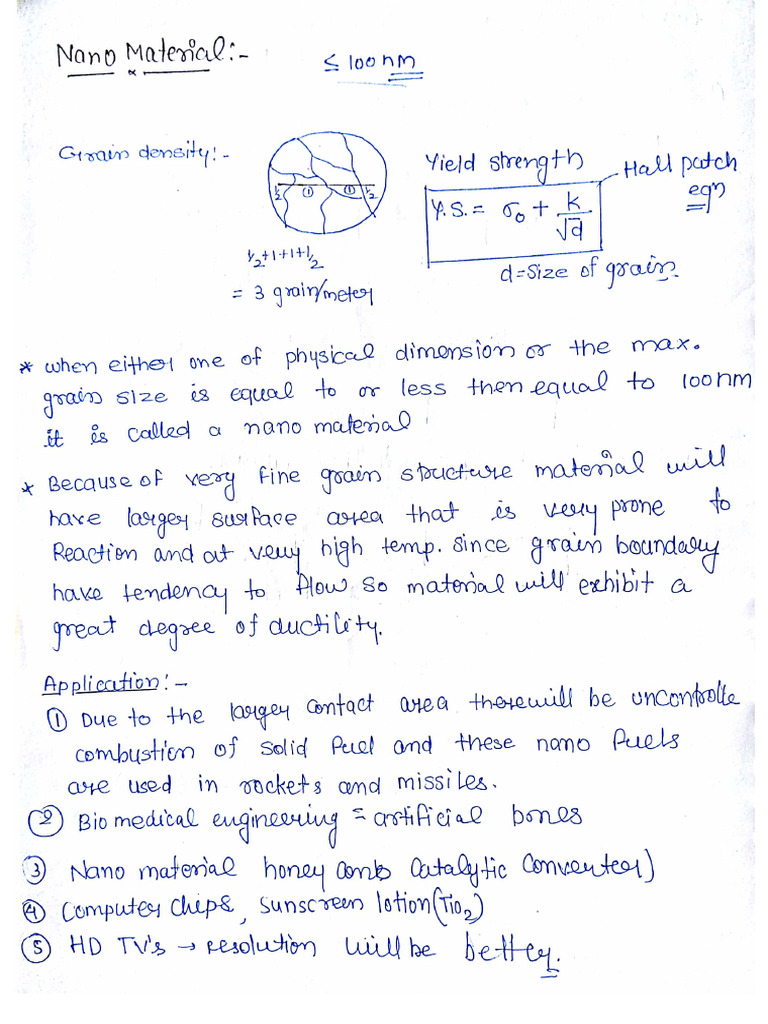 Nano Material:-
≤ 100nm
Grain density:-
1/2 1 1 1/2
1/2+1+1+1/2
= 3 grain/meter
Yield strength
Y.S. = σ₀ + k/√d
Hall patch
eqn
d=Size of grain.
* when either one of physical dimension or the max.
grain size is equal to or less then equal to 100nm
it is called a nano material
* Because of very fine grain structure material will
have larger surface area that is very prone to
Reaction and at very high temp. since grain boundary
have tendency to flow so material will exhibit a
great degree of ductility.
Application:-
① Due to the larger contact area there will be uncontrolle
combustion of solid fuel and these nano fuels
are used in rockets and missiles.
② Bio medical engineering = artificial bones
③ Nano material honey comb Catalytic Converter)
④ Computer chips, Sunscreen lotion (TiO₂)
⑤ HD TV's → resolution will be better.